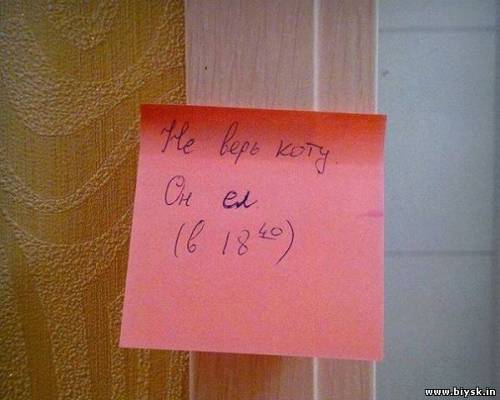 Не верь коту.
Он ел.
(в 18⁴⁰)
www.biysk.in